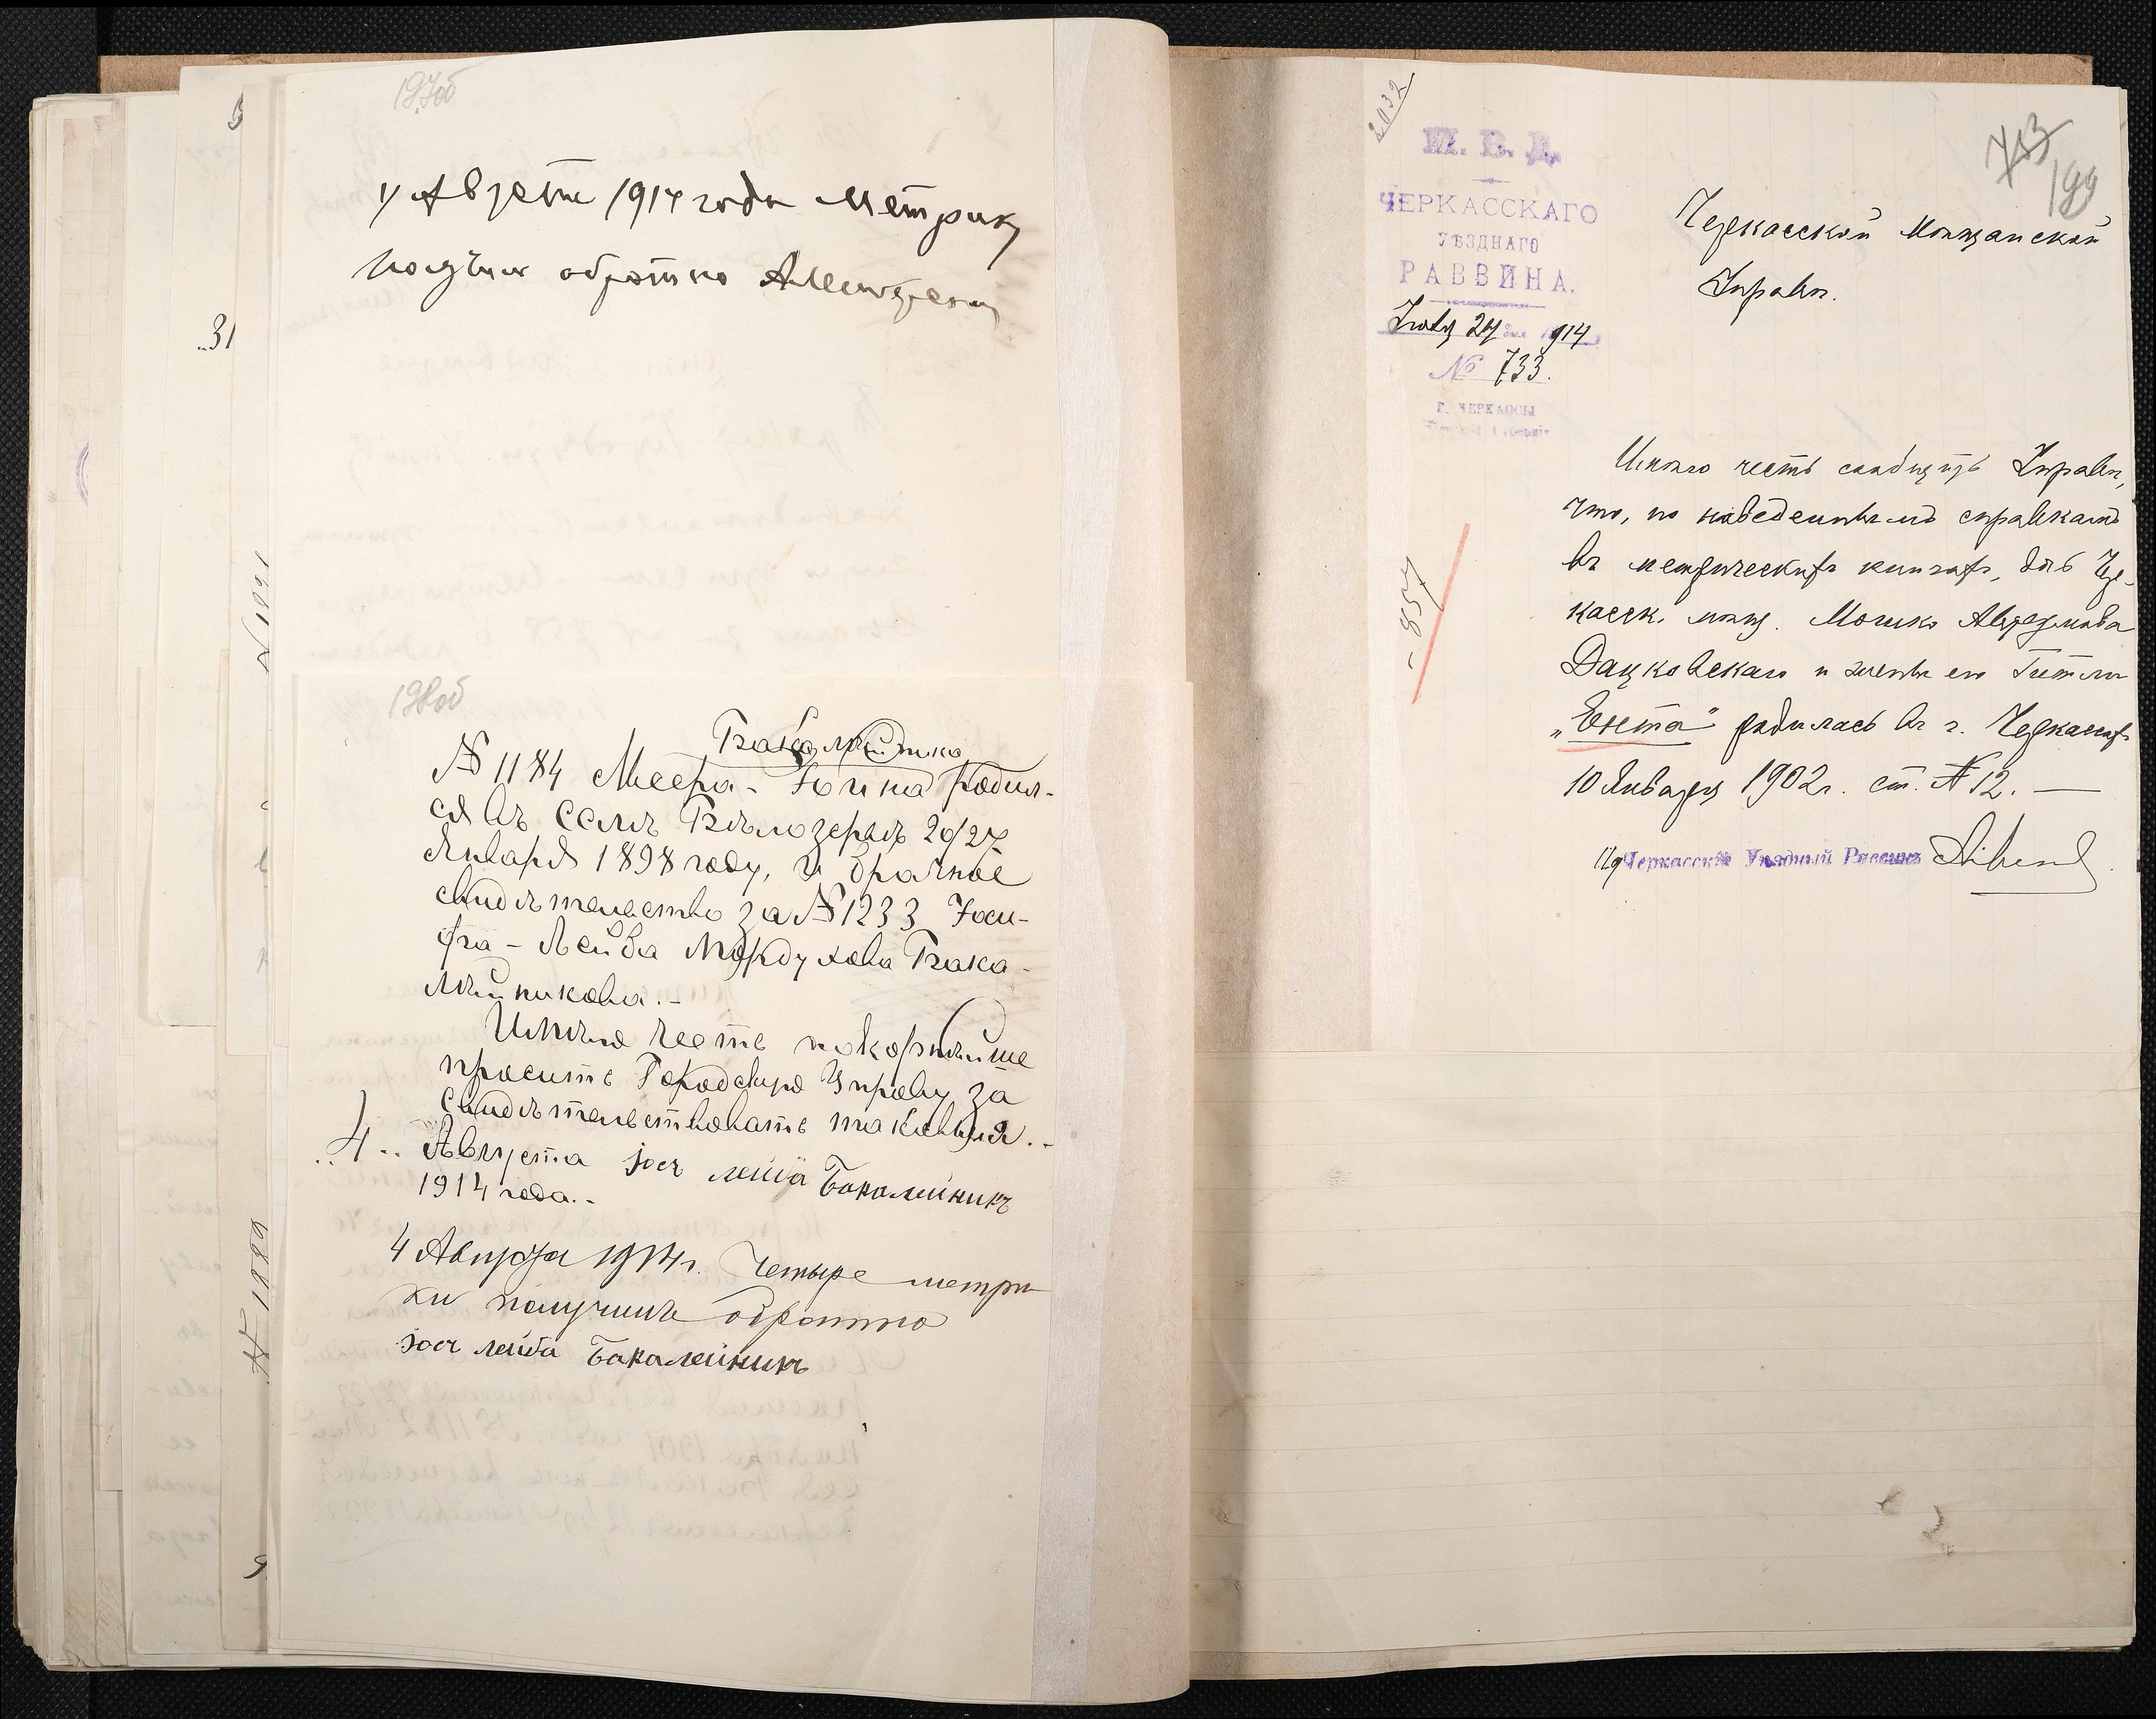 197об
4 Августа 1914 года метрику
получил обратно
198об
Бакалейника
№ 1184 Меера-Іонна родил-
ся въ селѣ Бѣлозерьѣ 20/27
Января 1898 году, и брачное
свидѣтельство за № 1233 Іоси-
фа-Лейба Мордухова Бака-
лѣйникова.-
Имѣю честь покорнѣйше
просить Городскую Управу за
свидѣтельствовать таковыя.-
"4" Августа Іось лейба Бакалейникъ
1914 года.-
4 Августа 1914 г. Четыре метри
ки получилъ обратно
Іось лейба Бакалейникъ
31
№ 1191
№ 1199
2032
713
199
М. В. Д.
ЧЕРКАССКАГО
УѢЗДНАГО
РАВВИНА.
Іюля 24 дня 1914
№ 733.
Г. ЧЕРКАССЫ
Кіевской Губерніи
Черкасской Мѣщанской
Управѣ.
857
Имѣю честь сообщить Управѣ,
что, по наведеннымъ справкамъ
въ метрическихъ книгахъ, дочь Чер-
касск. мѣщ. Мошко Авраамова
Дацковскаго и жены его Гитли
„Ента" родилась въ г. Черкассахъ
10 Января 1902 г. ст. № 12. —
Ид Черкасскій Уѣздный Раввинъ